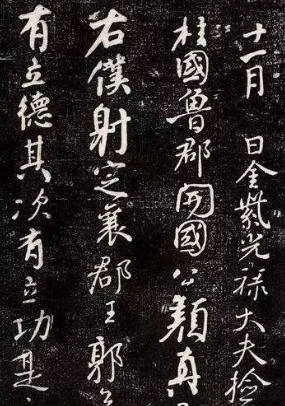 十一月 日金紫光禄大夫捡
柱國魯郡開國公顔真
右僕射定襄郡王郭
有立德其次有立功是